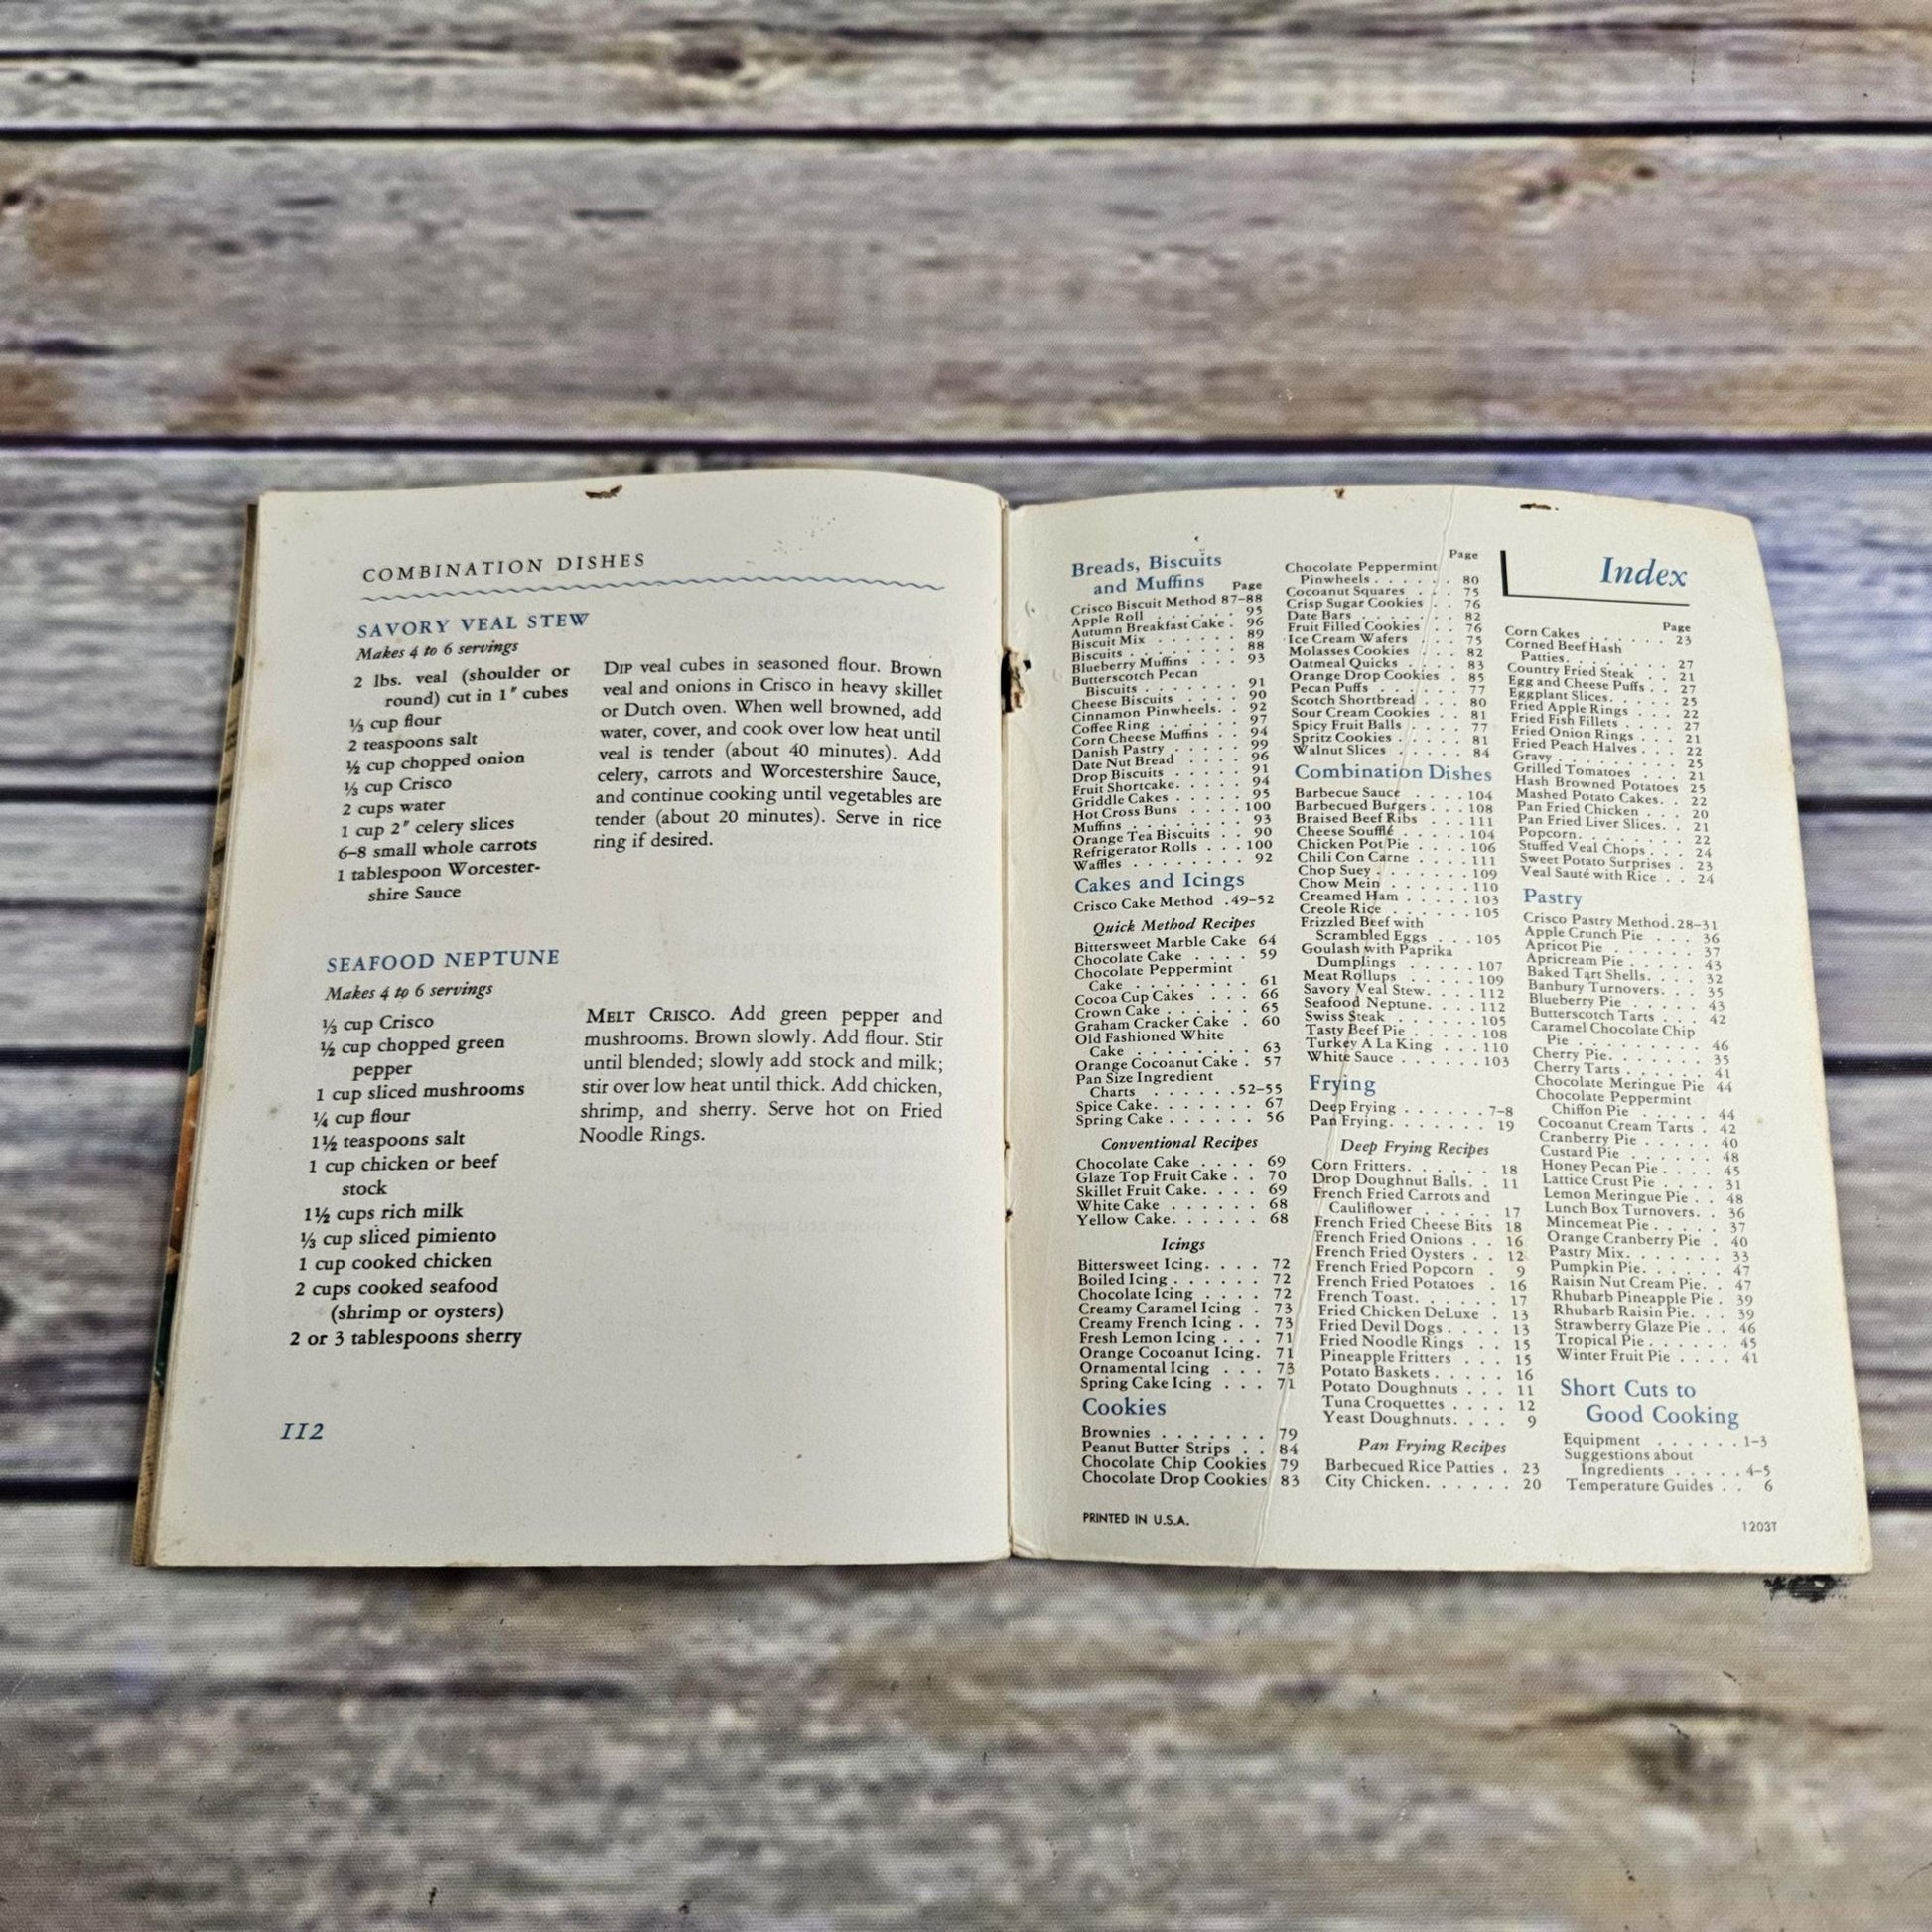 COMBINATION DISHES
SAVORY VEAL STEW
Makes 4 to 6 servings
2 lbs. veal (shoulder or
round) cut in 1" cubes
⅓ cup flour
2 teaspoons salt
½ cup chopped onion
⅓ cup Crisco
2 cups water
1 cup 2" celery slices
6–8 small whole carrots
1 tablespoon Worcester-
shire Sauce
DIP veal cubes in seasoned flour. Brown
veal and onions in Crisco in heavy skillet
or Dutch oven. When well browned, add
water, cover, and cook over low heat until
veal is tender (about 40 minutes). Add
celery, carrots and Worcestershire Sauce,
and continue cooking until vegetables are
tender (about 20 minutes). Serve in rice
ring if desired.
SEAFOOD NEPTUNE
Makes 4 to 6 servings
⅓ cup Crisco
½ cup chopped green
pepper
1 cup sliced mushrooms
¼ cup flour
1½ teaspoons salt
1 cup chicken or beef
stock
1½ cups rich milk
⅓ cup sliced pimiento
1 cup cooked chicken
2 cups cooked seafood
(shrimp or oysters)
2 or 3 tablespoons sherry
MELT CRISCO. Add green pepper and
mushrooms. Brown slowly. Add flour. Stir
until blended; slowly add stock and milk;
stir over low heat until thick. Add chicken,
shrimp, and sherry. Serve hot on Fried
Noodle Rings.
112
Breads, Biscuits
and Muffins Page
Crisco Biscuit Method 87–88
Apple Roll . . . . . 95
Autumn Breakfast Cake . 96
Biscuit Mix . . . . . . 89
Biscuits . . . . . . . 88
Blueberry Muffins . . . 93
Butterscotch Pecan
Biscuits . . . . . . 91
Cheese Biscuits . . . . 90
Cinnamon Pinwheels . . 92
Coffee Ring . . . . . . 97
Corn Cheese Muffins . . 94
Danish Pastry . . . . . 99
Date Nut Bread . . . . 96
Drop Biscuits . . . . . 91
Fruit Shortcake . . . . 94
Griddle Cakes . . . . . 95
Hot Cross Buns . . . . 100
Muffins . . . . . . . 93
Orange Tea Biscuits . . 90
Refrigerator Rolls . . . 100
Waffles . . . . . . . 92
Cakes and Icings
Crisco Cake Method . 49–52
Quick Method Recipes
Bittersweet Marble Cake 64
Chocolate Cake . . . . 59
Chocolate Peppermint
Cake . . . . . . . 61
Cocoa Cup Cakes . . . 66
Crown Cake . . . . . . 65
Graham Cracker Cake . 60
Old Fashioned White
Cake . . . . . . . 63
Orange Cocoanut Cake . 57
Pan Size Ingredient
Charts . . . . . . 52–55
Spice Cake . . . . . . 67
Spring Cake . . . . . . 56
Conventional Recipes
Chocolate Cake . . . . 69
Glaze Top Fruit Cake . . 70
Skillet Fruit Cake . . . . 69
White Cake . . . . . . 68
Yellow Cake . . . . . . 68
Icings
Bittersweet Icing . . . . 72
Boiled Icing . . . . . . 72
Chocolate Icing . . . . 72
Creamy Caramel Icing . 73
Creamy French Icing . . 73
Fresh Lemon Icing . . . 71
Orange Cocoanut Icing . 71
Ornamental Icing . . . 73
Spring Cake Icing . . . 71
Cookies
Brownies . . . . . . . 79
Peanut Butter Strips . . 84
Chocolate Chip Cookies 79
Chocolate Drop Cookies 83
PRINTED IN U.S.A.
Page
Chocolate Peppermint
Pinwheels . . . . . . 80
Cocoanut Squares . . . 75
Crisp Sugar Cookies . . 76
Date Bars . . . . . . 82
Fruit Filled Cookies . . 76
Ice Cream Wafers . . . 75
Molasses Cookies . . . 82
Oatmeal Quicks . . . . 83
Orange Drop Cookies . 85
Pecan Puffs . . . . . 77
Scotch Shortbread . . . 80
Sour Cream Cookies . . 81
Spicy Fruit Balls . . . . 77
Spritz Cookies . . . . . 81
Walnut Slices . . . . . 84
Combination Dishes
Barbecue Sauce . . . . 104
Barbecued Burgers . . . 108
Braised Beef Ribs . . . 111
Cheese Soufflé . . . . . 104
Chicken Pot Pie . . . . 106
Chili Con Carne . . . . 111
Chop Suey . . . . . . 109
Chow Mein . . . . . . 110
Creamed Ham . . . . . 103
Creole Rice . . . . . . 105
Frizzled Beef with
Scrambled Eggs . . . 105
Goulash with Paprika
Dumplings . . . . . 107
Meat Rollups . . . . . 109
Savory Veal Stew . . . . 112
Seafood Neptune . . . . 112
Swiss Steak . . . . . . 105
Tasty Beef Pie . . . . . 108
Turkey A La King . . . 110
White Sauce . . . . . . 103
Frying
Deep Frying . . . . . . 7–8
Pan Frying . . . . . . . 19
Deep Frying Recipes
Corn Fritters . . . . . . 18
Drop Doughnut Balls . . 11
French Fried Carrots and
Cauliflower . . . . . 17
French Fried Cheese Bits 18
French Fried Onions . . 16
French Fried Oysters . . 12
French Fried Popcorn . 9
French Fried Potatoes . 16
French Toast . . . . . . 17
Fried Chicken DeLuxe . 13
Fried Devil Dogs . . . . 13
Fried Noodle Rings . . 15
Pineapple Fritters . . . 15
Potato Baskets . . . . . 16
Potato Doughnuts . . . 11
Tuna Croquettes . . . . 12
Yeast Doughnuts . . . . 9
Pan Frying Recipes
Barbecued Rice Patties . 23
City Chicken . . . . . . 20
Index
Page
Corn Cakes . . . . . . 23
Corned Beef Hash
Patties . . . . . . . 27
Country Fried Steak . . 21
Egg and Cheese Puffs . . 27
Eggplant Slices . . . . . 25
Fried Apple Rings . . . 22
Fried Fish Fillets . . . . 27
Fried Onion Rings . . . 21
Fried Peach Halves . . . 22
Gravy . . . . . . . . 25
Grilled Tomatoes . . . 21
Hash Browned Potatoes 25
Mashed Potato Cakes . . 22
Pan Fried Chicken . . . 20
Pan Fried Liver Slices . . 21
Popcorn . . . . . . . 22
Stuffed Veal Chops . . . 24
Sweet Potato Surprises . 23
Veal Sauté with Rice . . 24
Pastry
Crisco Pastry Method . 28–31
Apple Crunch Pie . . . 36
Apricot Pie . . . . . . 37
Apricream Pie . . . . . 43
Baked Tart Shells . . . . 32
Banbury Turnovers . . . 35
Blueberry Pie . . . . . 43
Butterscotch Tarts . . . 42
Caramel Chocolate Chip
Pie . . . . . . . . 46
Cherry Pie . . . . . . 35
Cherry Tarts . . . . . 41
Chocolate Meringue Pie 44
Chocolate Peppermint
Chiffon Pie . . . . . 44
Cocoanut Cream Tarts . 42
Cranberry Pie . . . . . 40
Custard Pie . . . . . . 48
Honey Pecan Pie . . . . 45
Lattice Crust Pie . . . . 31
Lemon Meringue Pie . . 48
Lunch Box Turnovers . . 36
Mincemeat Pie . . . . . 37
Orange Cranberry Pie . 40
Pastry Mix . . . . . . . 33
Pumpkin Pie . . . . . . 47
Raisin Nut Cream Pie . . 47
Rhubarb Pineapple Pie . 39
Rhubarb Raisin Pie . . . 39
Strawberry Glaze Pie . . 46
Tropical Pie . . . . . . 45
Winter Fruit Pie . . . . 41
Short Cuts to
Good Cooking
Equipment . . . . . . 1–3
Suggestions about
Ingredients . . . . . 4–5
Temperature Guides . . 6
1203T